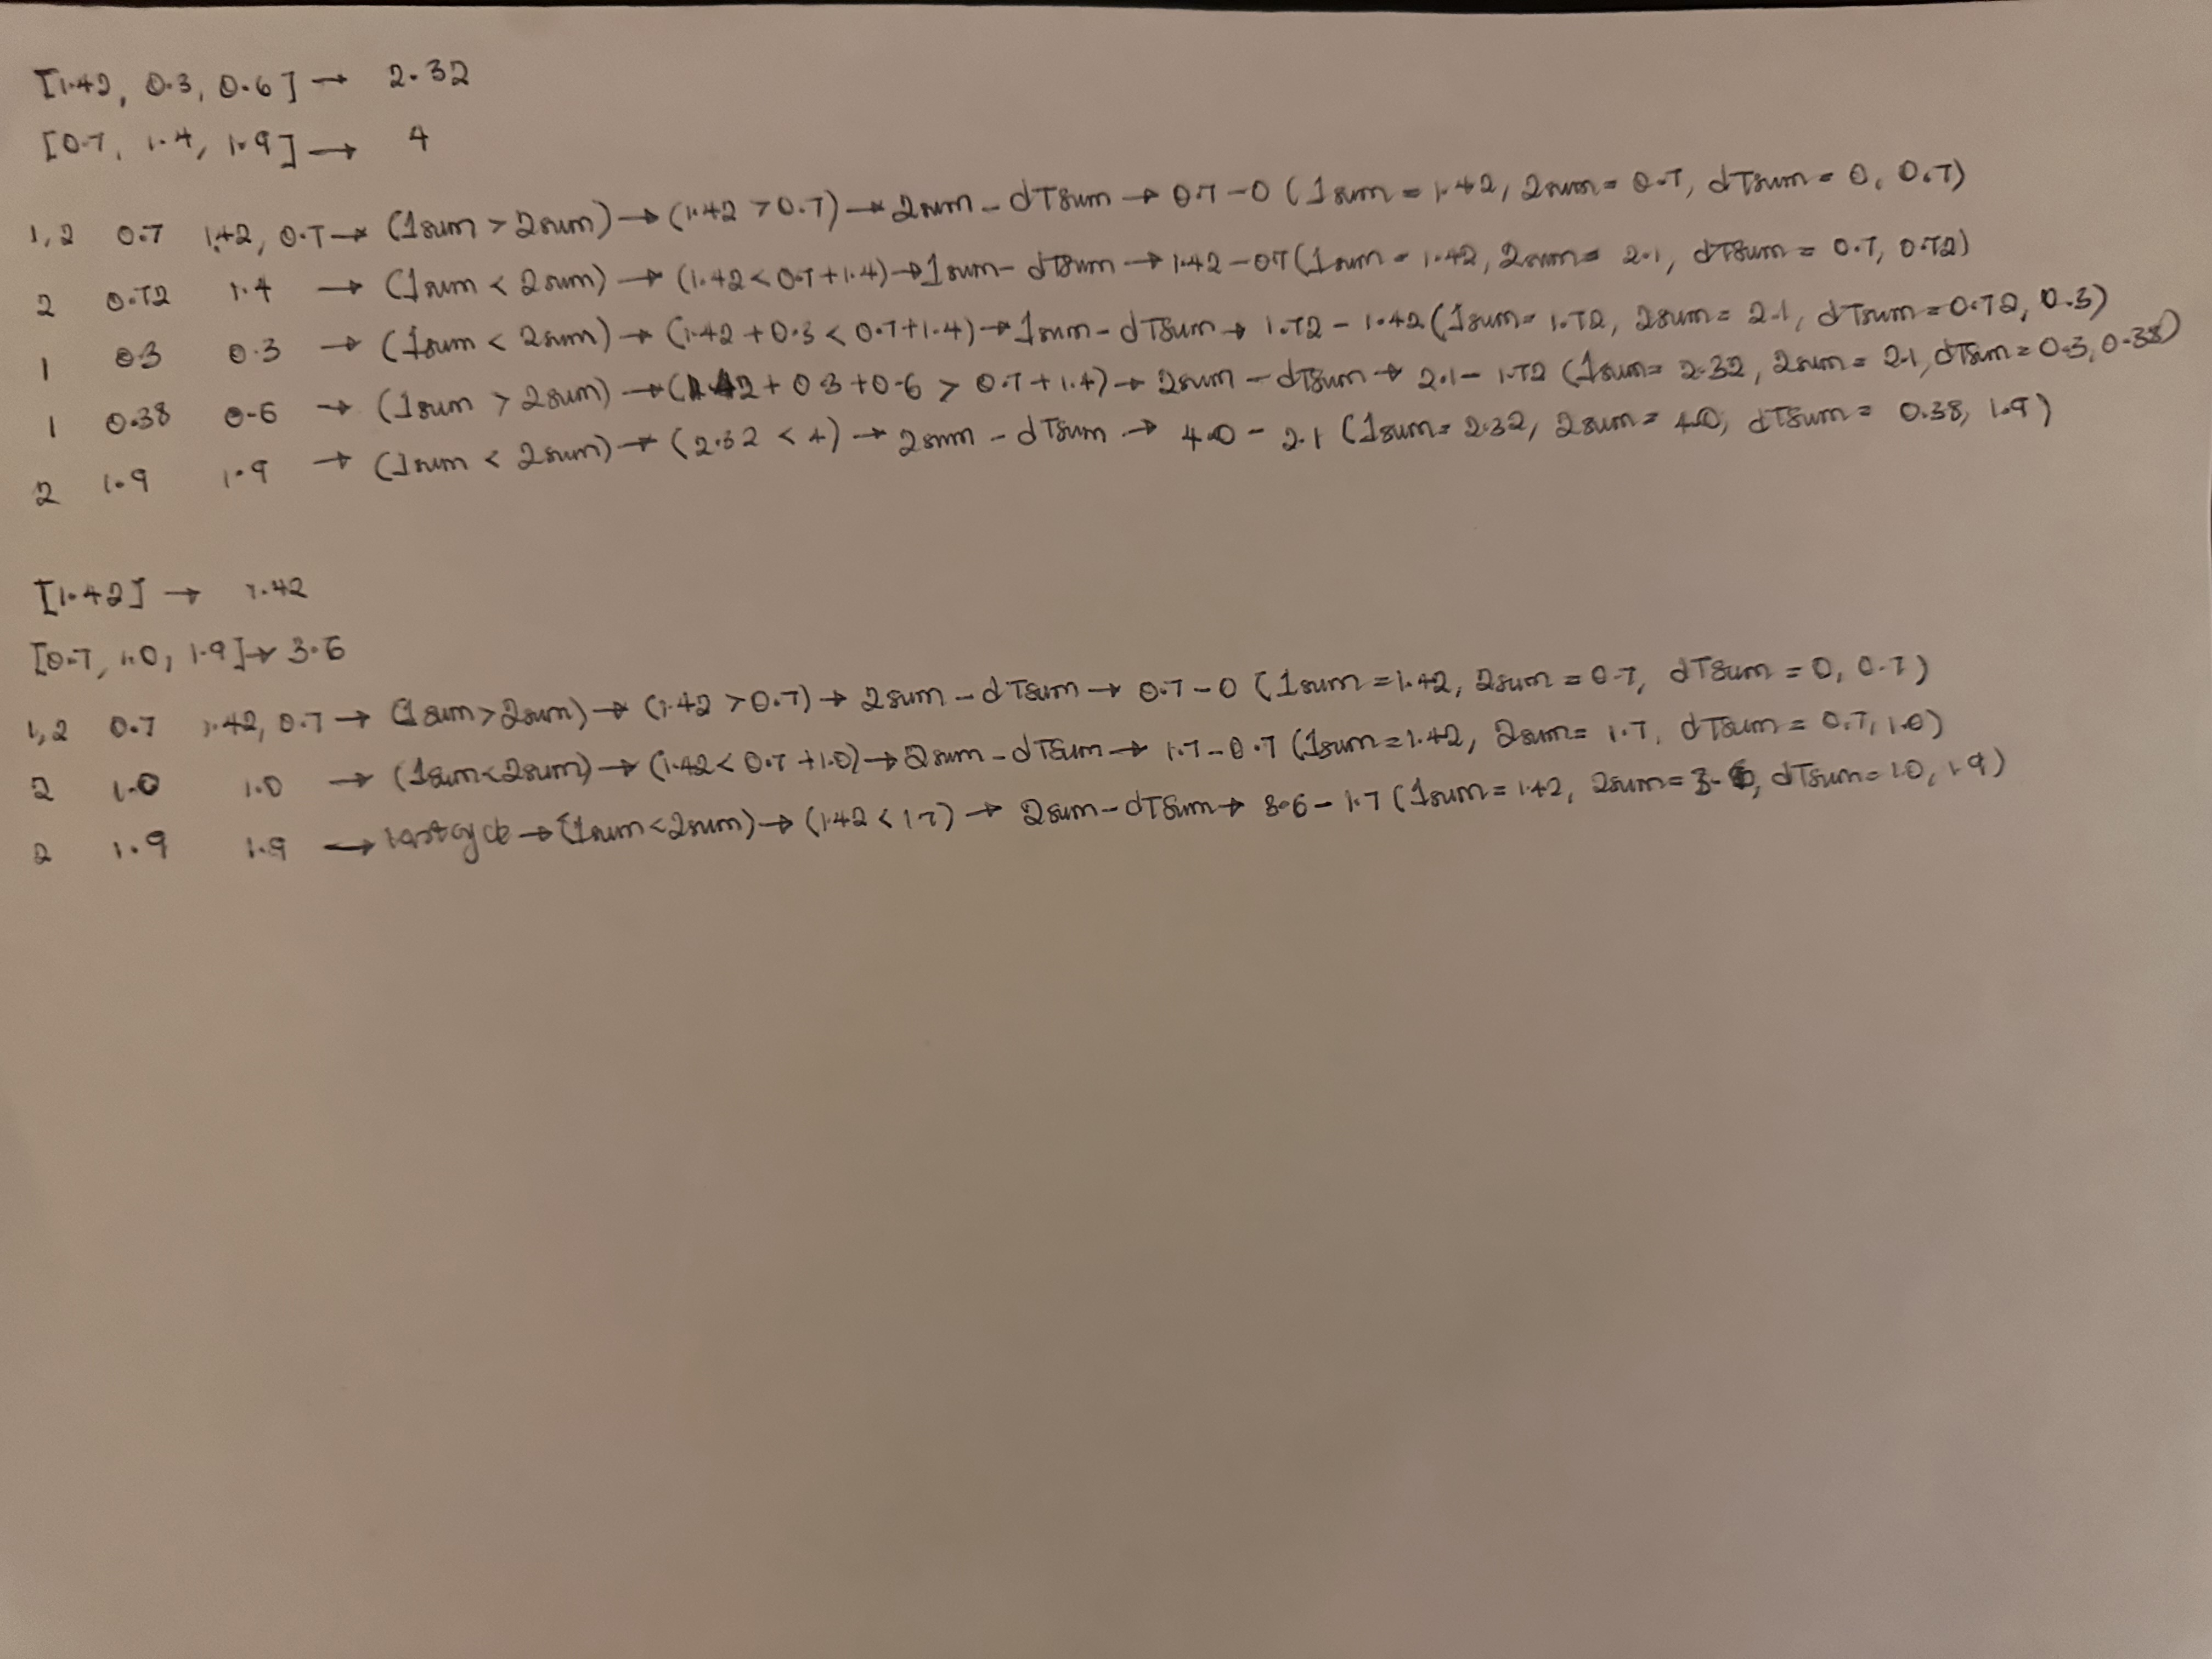 [1.42, 0.3, 0.6] → 2.32
[0.7, 1.4, 1.9] → 4
1,2 0.7 1.42, 0.7 → (1sum > 2sum) → (1.42 > 0.7) → 2sum - dTsum → 0.7 - 0 (1sum = 1.42, 2sum = 0.7, dTsum = 0, 0.7)
2 0.72 1.4 → (1sum < 2sum) → (1.42 < 0.7 + 1.4) → 1sum - dTsum → 1.42 - 0.7 (1sum = 1.42, 2sum = 2.1, dTsum = 0.7, 0.72)
1 0.3 0.3 → (1sum < 2sum) → (1.42 + 0.3 < 0.7 + 1.4) → 1sum - dTsum → 1.72 - 1.42 (1sum = 1.72, 2sum = 2.1, dTsum = 0.72, 0.3)
1 0.38 0.6 → (1sum > 2sum) → (1.42 + 0.3 + 0.6 > 0.7 + 1.4) → 2sum - dTsum → 2.1 - 1.72 (1sum = 2.32, 2sum = 2.1, dTsum = 0.3, 0.38)
2 1.9 1.9 → (1sum < 2sum) → (2.32 < 4) → 2sum - dTsum → 4.0 - 2.1 (1sum = 2.32, 2sum = 4.0, dTsum = 0.38, 1.9)
[1.42] → 1.42
[0.7, 1.0, 1.9] → 3.6
1,2 0.7 1.42, 0.7 → (1sum > 2sum) → (1.42 > 0.7) → 2sum - dTsum → 0.7 - 0 (1sum = 1.42, 2sum = 0.7, dTsum = 0, 0.7)
2 1.0 1.0 → (1sum < 2sum) → (1.42 < 0.7 + 1.0) → 2sum - dTsum → 1.7 - 0.7 (1sum = 1.42, 2sum = 1.7, dTsum = 0.7, 1.0)
2 1.9 1.9 → lastcycle → (1sum < 2sum) → (1.42 < 1.7) → 2sum - dTsum → 3.6 - 1.7 (1sum = 1.42, 2sum = 3.6, dTsum = 1.0, 1.9)